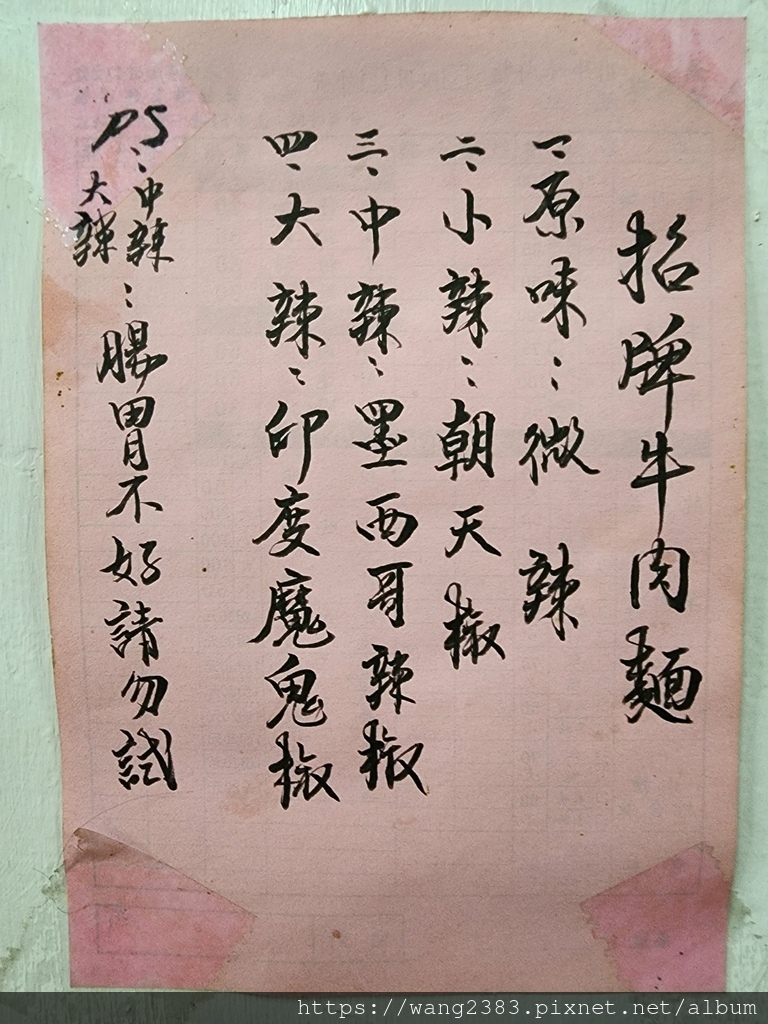 招牌牛肉麵
一、原味：微辣
二、小辣：朝天椒
三、中辣：墨西哥辣椒
四、大辣：印度魔鬼椒
PS：中辣
大辣：腸胃不好請勿試
https://wang2383.pixnet.net/album